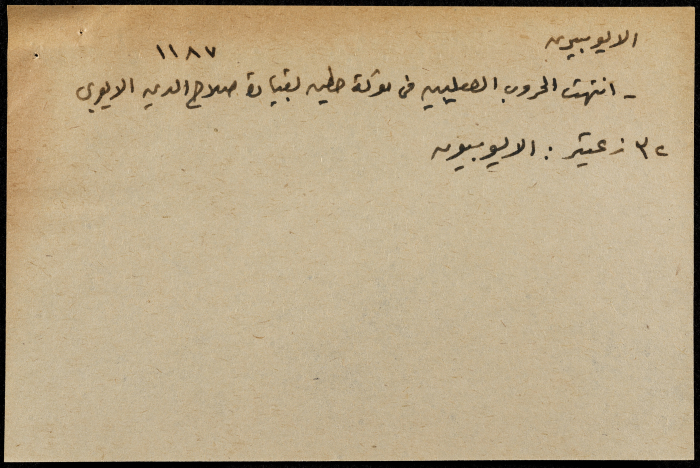 الايوبيون
١١٨٧
- انتهت الحروب الصليبية في معركة حطين بقيادة صلاح الدين الايوبي
٣٢ زعيتر : الايوبيون